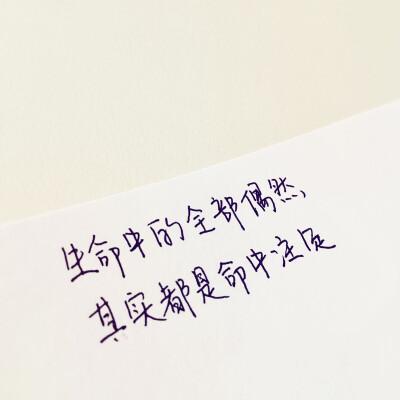 生命中的全部偶然,
其实都是命中注定